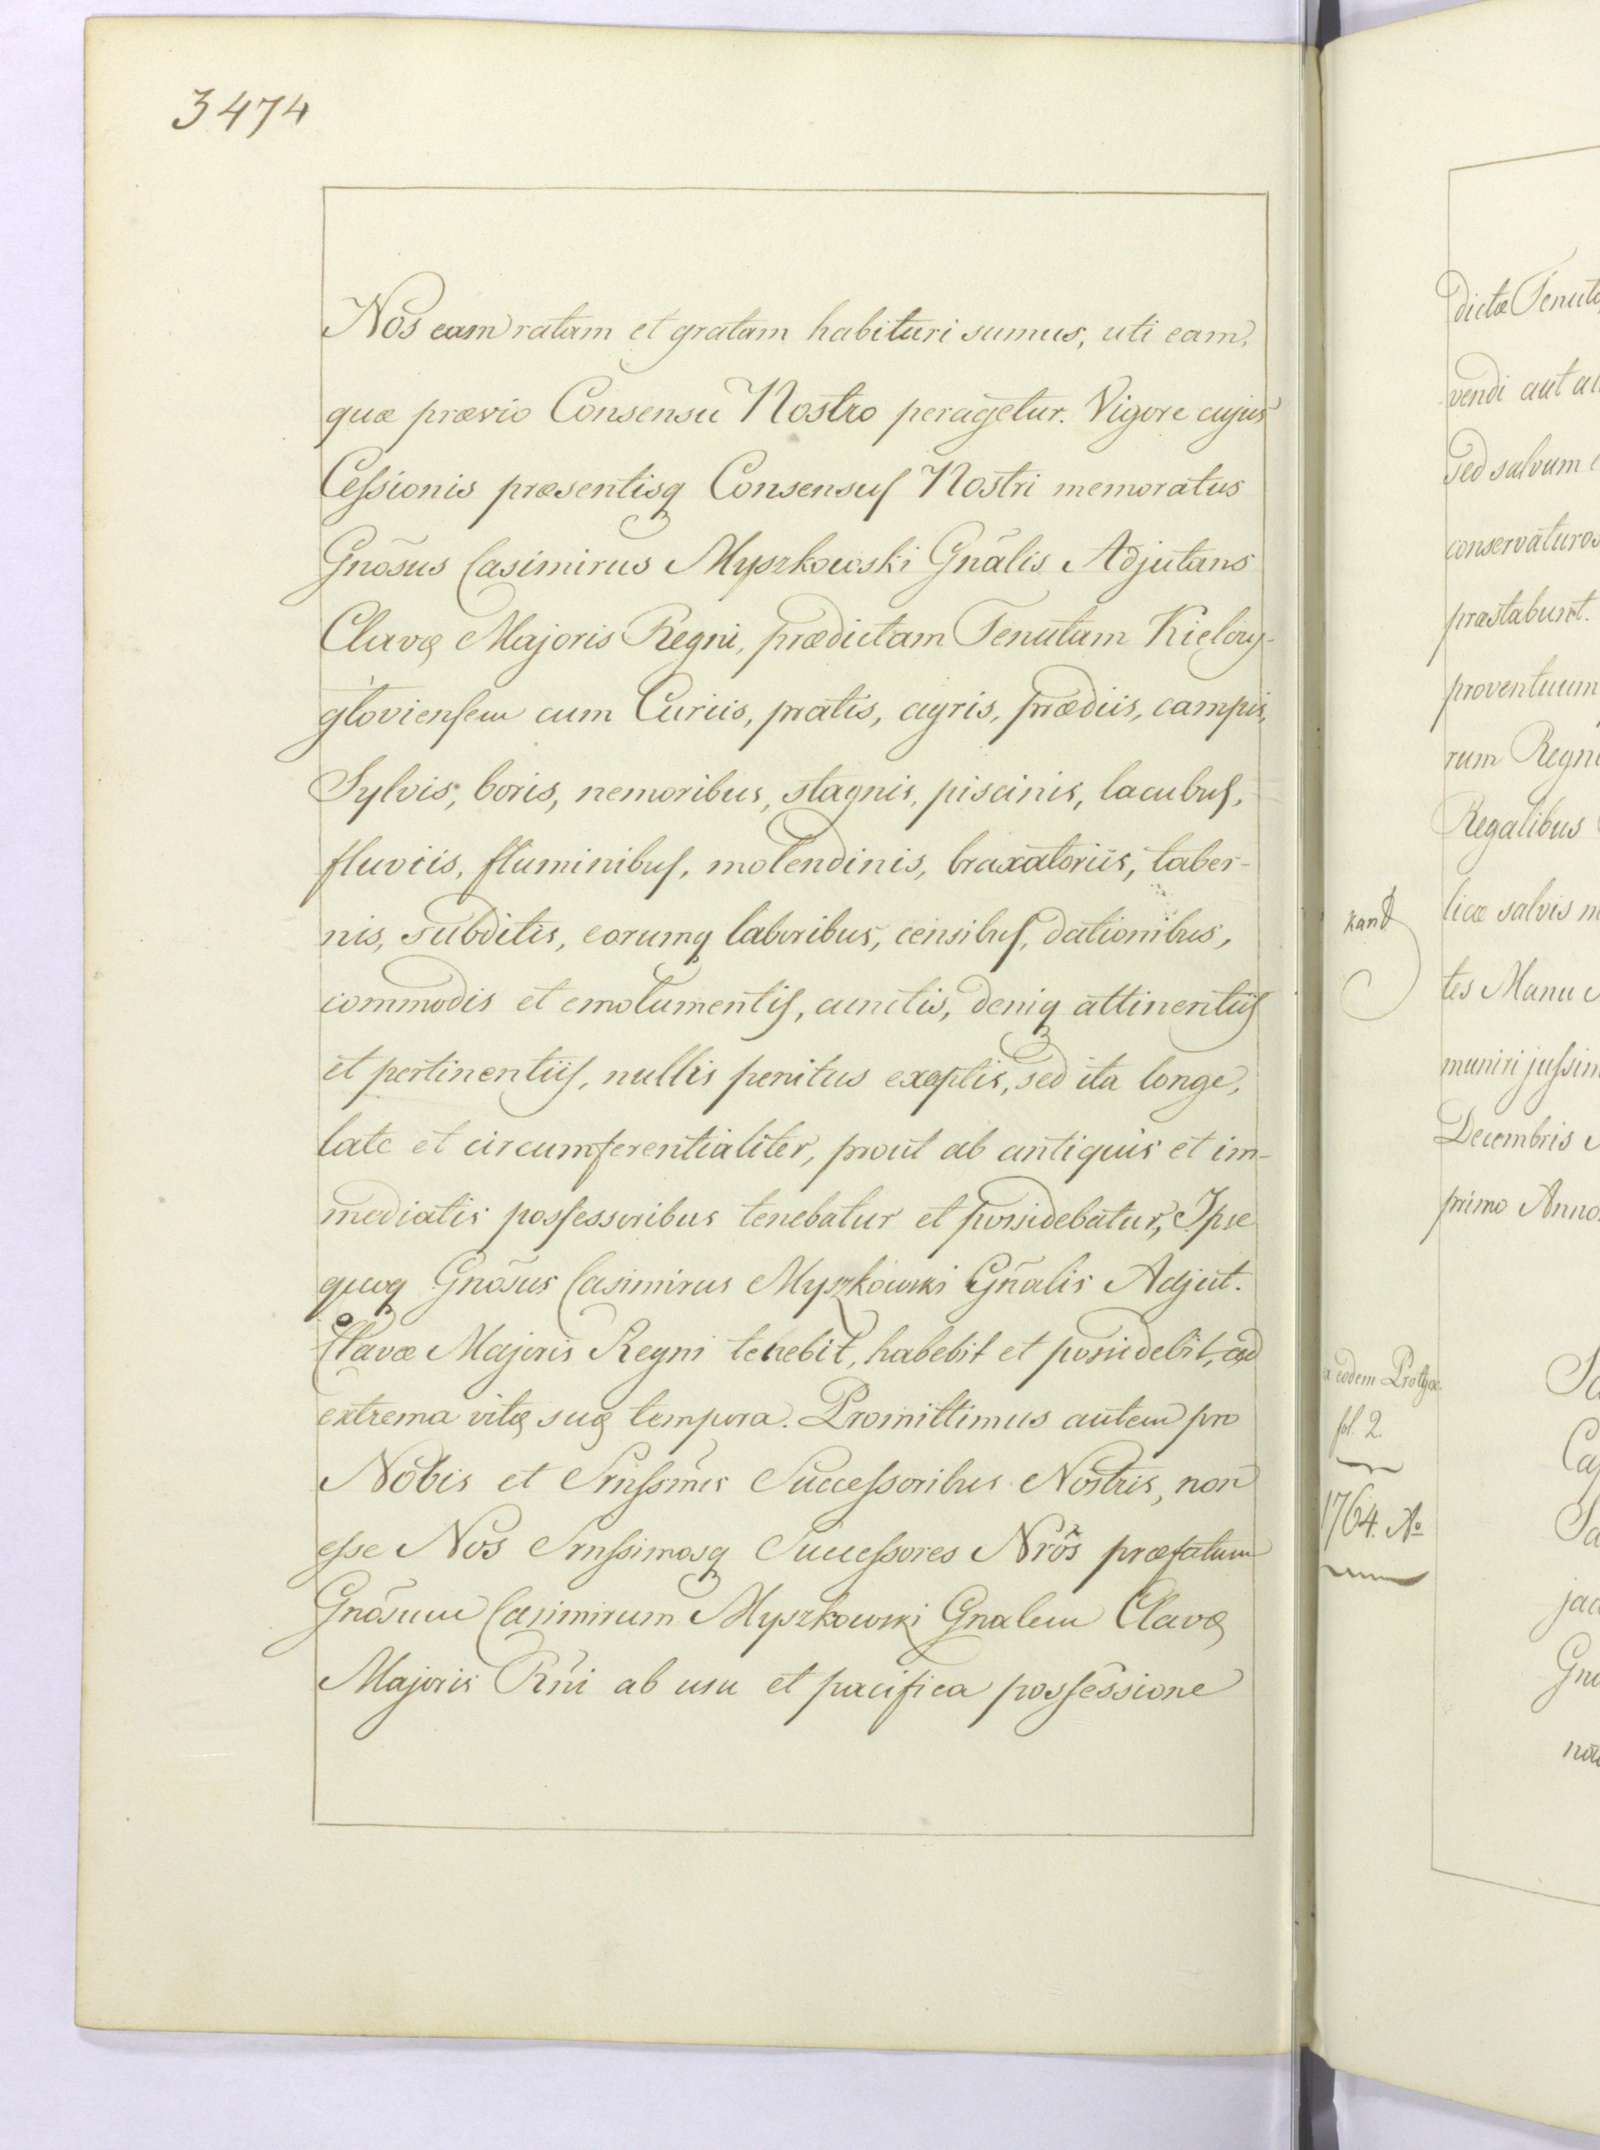 3474
Nos eam ratam et gratam habituri sumus, uti eam,
quæ prævio Consensu Nostro peragetur. Vigore cujus
Cessionis præsentisq Consensus Nostri memoratus
Gnõsus Casimirus Myszkowski Gnãlis Adjutans
Clavę Majoris Regni, prædictam Tenutam
gloviensem cum Curiis, pratis, agris, prædiis, campis,
Sylvis, boris, nemoribus, stagnis, piscinis, lacubus,
fluviis, fluminibus, molendinis, braxatoriis, taber-
nis, subditis, eorumq laboribus, censibus, dationibus,
commodis et emolumentis, cunctis, deniq attinentiis
et pertinentiis, nullis penitus exceptis, sed ita longe,
late et circumferentialiter, prout ab antiquis et im-
mediatis possessoribus tenebatur et possidebatur, Ipse
quoq Gnõsus Casimirus Myszkowski Gñalis Adjut.
Clavæ Majoris Regni tenebit, habebit et possidebit, ad
extrema vitę suę tempora. Promittimus autem pro
Nobis et Srnssimis Successoribus Nostris, non
esse Nos Srnssimosq Successores Nrõs præfatum
Gnõsum Casimirum Myszkowski Gnalem Clavę
Majoris Rñi ab usu et pacifica possessione
dictæ
vendi aut
sed salvum
conservaturos
præstabunt.
proventuum
rum
Regalibus
licæ salvis
tes Manu
muniri
Decembris
primo Anno
eodem
fol. 2.
1764. Ao